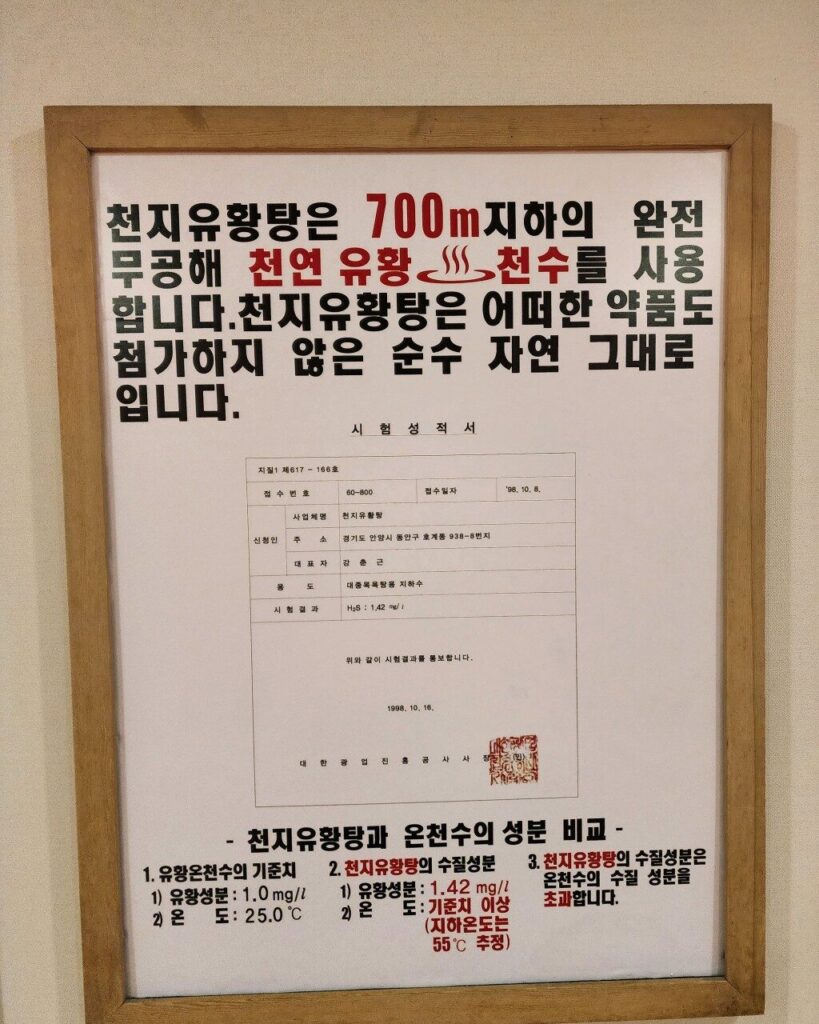 천지유황탕은 700m지하의 완전
무공해 천연 유황 천수를 사용
합니다.천지유황탕은 어떠한 약품도
첨가하지 않은 순수 자연 그대로
입니다.
시 험 성 적 서
지질1 제617 - 166호
접 수 번 호 60-800 접수일자 '98. 10. 8.
신청인 사업체명 천지유황탕
주 소 경기도 안양시 동안구 호계동 938-8번지
대 표 자 강 춘 근
용 도 대중목욕탕용 지하수
시 험 결 과 H₂S : 1.42 mg/l
위와 같이 시험결과를 통보합니다.
1998. 10. 16.
대 한 광 업 진 흥 공 사 사 장
- 천지유황탕과 온천수의 성분 비교 -
1. 유황온천수의 기준치
1) 유황성분 : 1.0 mg/l
2) 온 도 : 25.0 ℃
2. 천지유황탕의 수질성분
1) 유황성분 : 1.42 mg/l
2) 온 도 : 기준치 이상
(지하온도는
55℃ 추정)
3. 천지유황탕의 수질성분은
온천수의 수질 성분을
초과합니다.